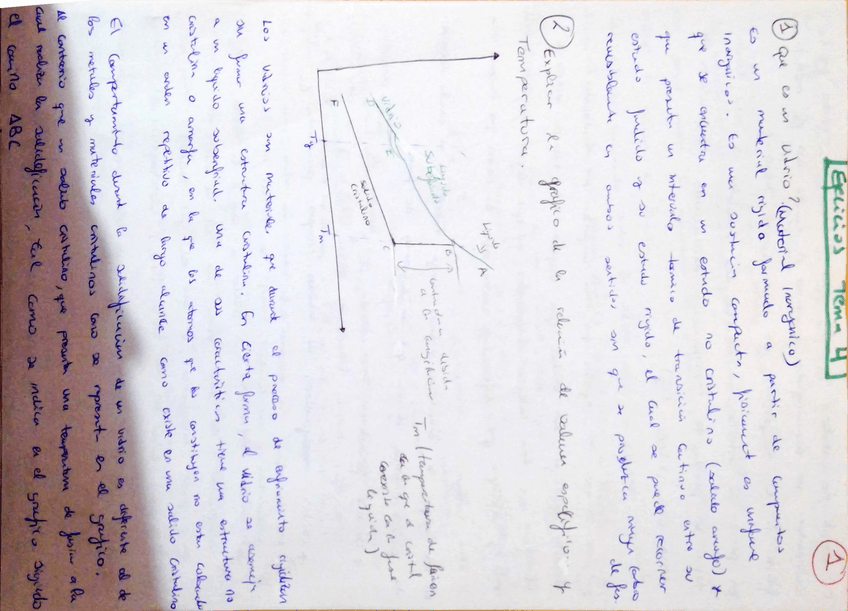 Ejercicios Tema 4
1
① Que es un vidrio? (Material inorgánico)
Es un material rigido formado a partir de compuestos
inorgánicos. Es una sustancia compacta, fisicament es uniforme
que se encuentra en un estado no cristalino (solido amorfo) y
que presenta un intervalo termico de transición continuo entre su
estado fundido y su estado rigido, el cual se puede recorrer
reversiblemente en ambos sentidos sin que se produzca ningun cambio
de fase.
② Explicar la grafica de la relación de volumen especifico y
Temperatura.
A
liquido
B
liquido
subenfriado
E
vidrio
D
F
solido
cristalino
C
Tg
Tm
Tm (temperatura de fusion
en la que el cristal
coexiste en la fase
liquida)
Los vidrios son materiales que durante el proceso de enfriamiento rigidizan
sin formar una estructura cristalina. En cierta forma, el vidrio se asemeja
a un liquido subenfriado. Una de sus caracteristicas tiene una estructura no
cristalina o amorfa, en la que los atomos que la constituyen no estan colocados
en un orden repetitivo de largo alcance como existe en una solido cristalino
El comportamiento durante la solidificacion de un vidrio es diferente al de
los metales y materiales cristalinos como se representa en el grafico.
Al contrario que un solido cristalino, que presenta una temperatura de fusion a la
cual realiza la solidificacion, tal como se indica en el grafico siguiendo
el camino ABC